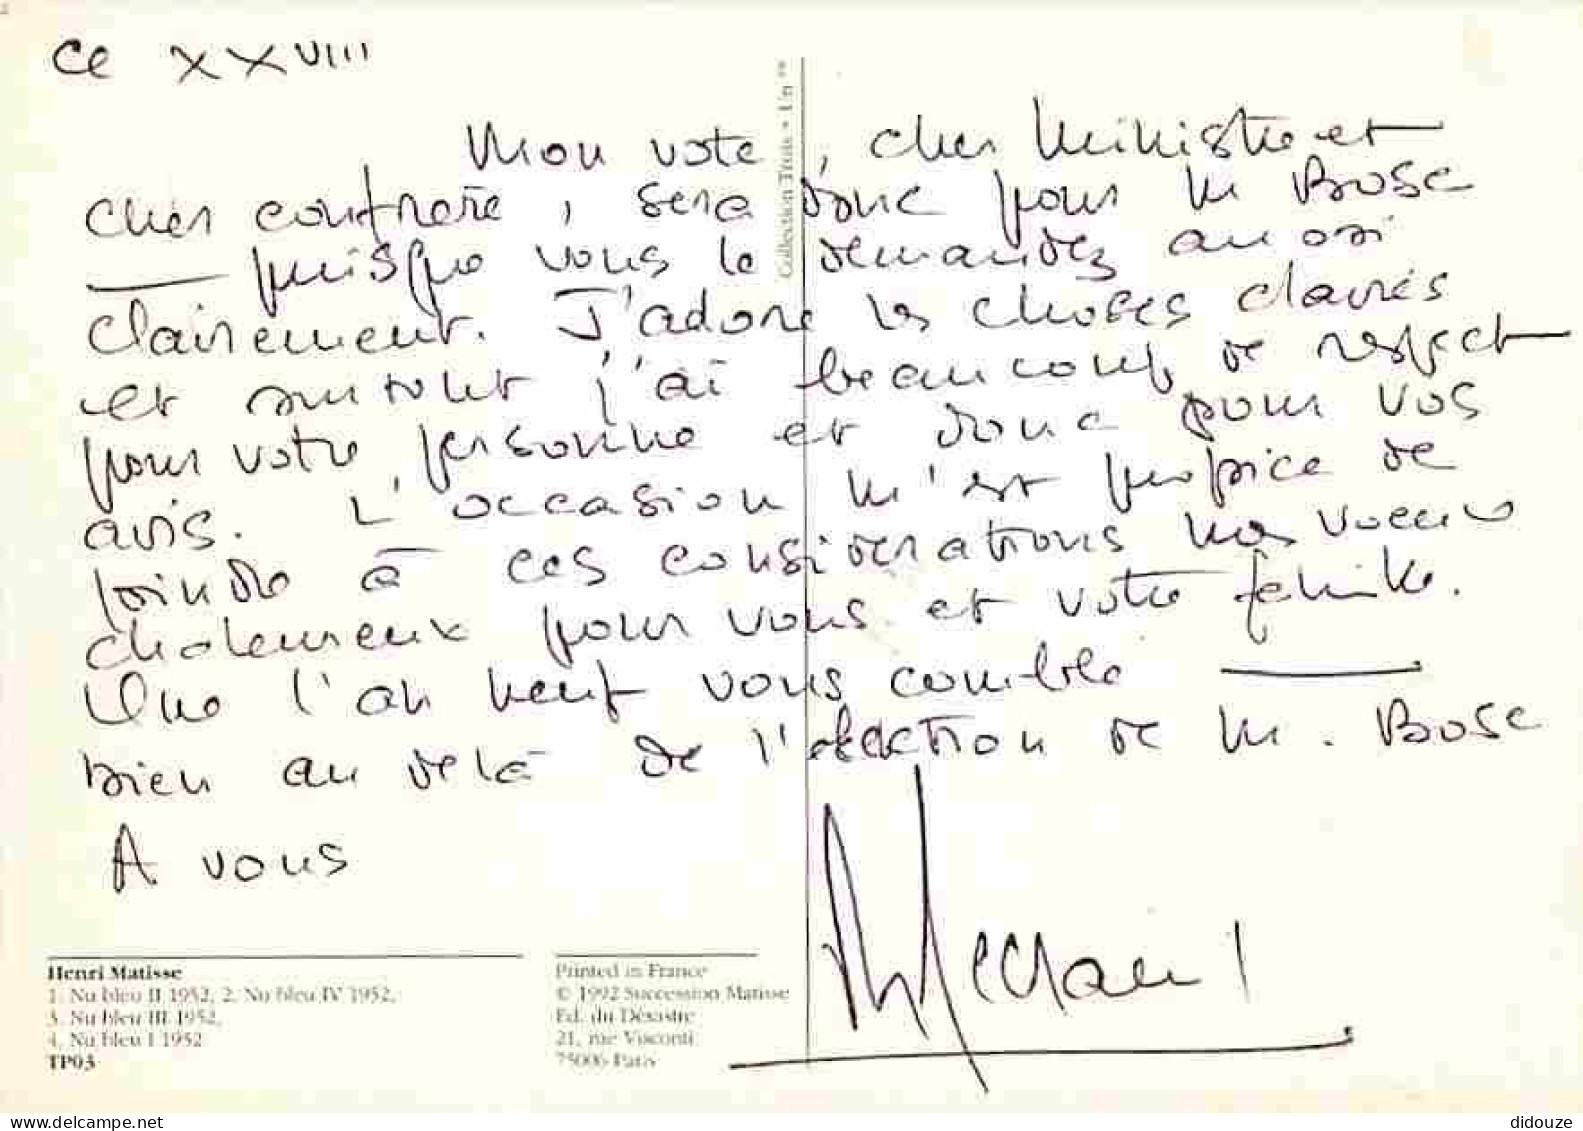 Ce XXVIII
Mon vote, cher Ministre et
cher confrère, sera donc pour M Bosc
— puisque vous le demandez aussi
clairement. J'adore les choses claires
et surtout j'ai beaucoup de respect
pour votre personne et donc pour vos
avis. L'occasion m'est propice de
joindre à ces considérations nos voeux
chaleureux pour vous et votre famille.
Que l'an neuf vous comble —
bien au delà de l'élection de M. Bosc
A vous
Collection Trois • Un
Henri Matisse
1. Nu bleu II 1952, 2. Nu bleu IV 1952,
3. Nu bleu III 1952,
4. Nu bleu I 1952
TP03
Printed in France
© 1992 Succession Matisse
Ed. du Désastre
21, rue Visconti
75006 Paris
didouze